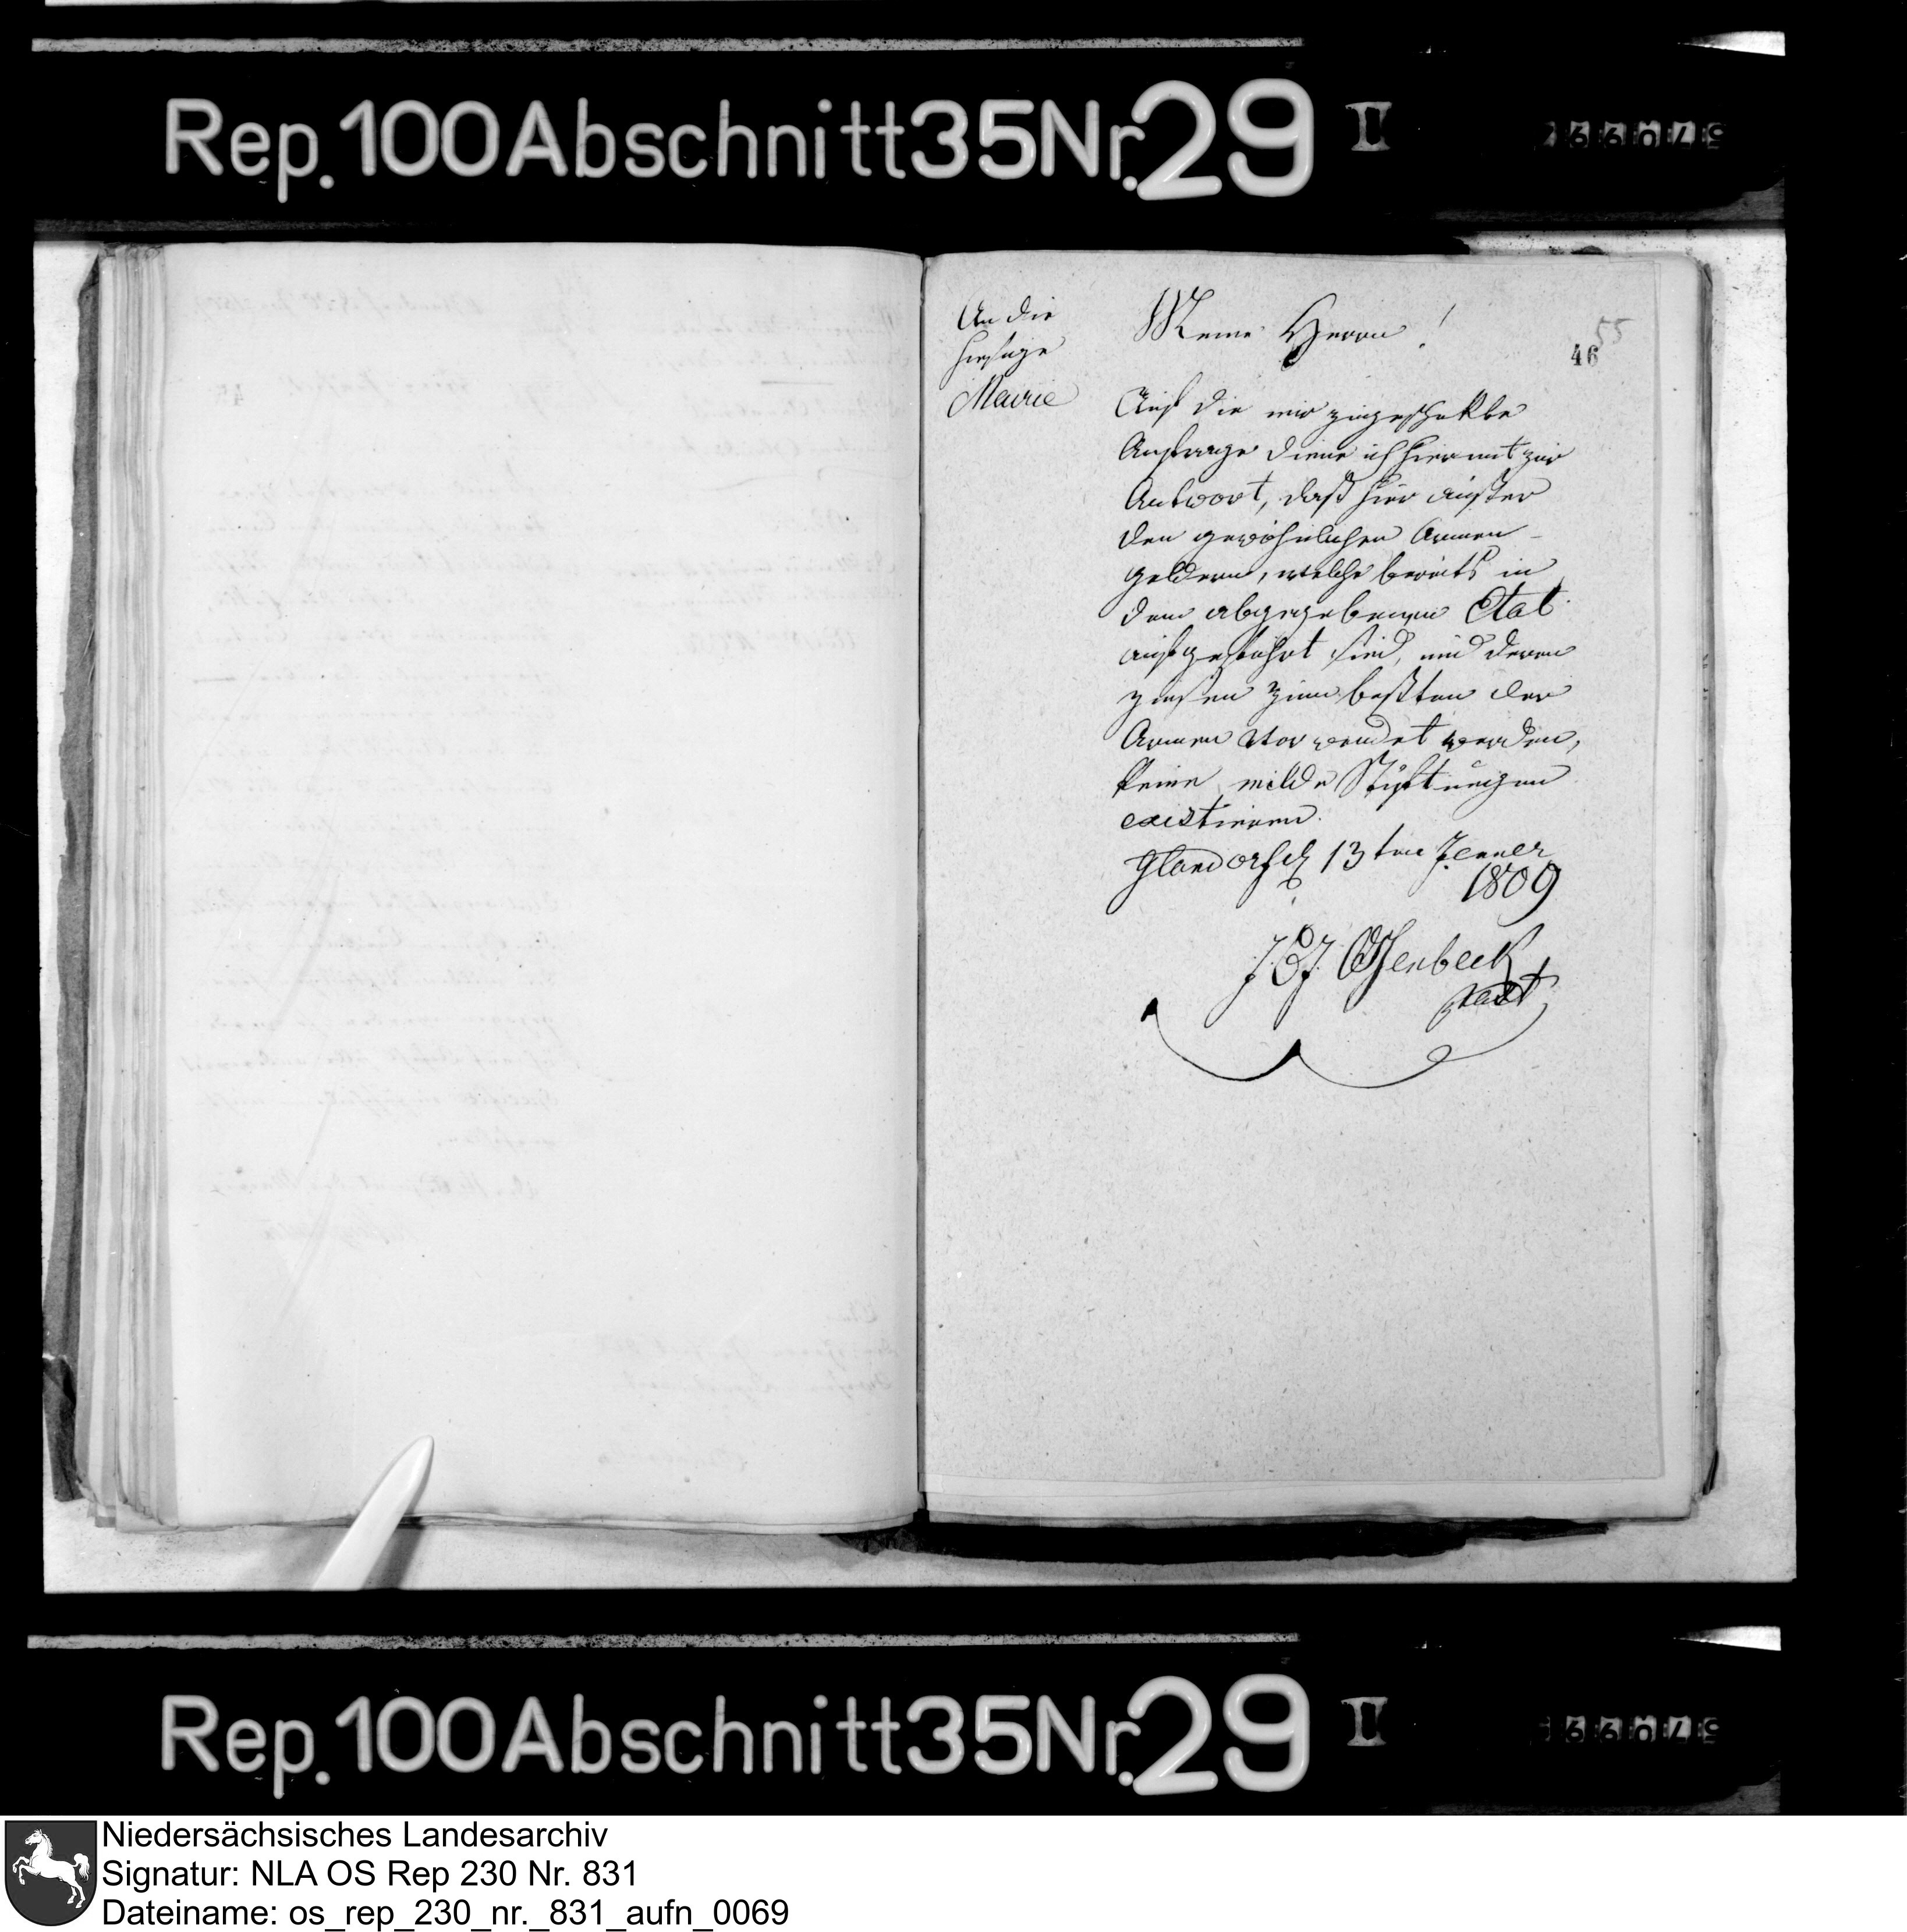 Rep. 100 Abschnitt 35 Nr. 29 I
An die
hiesige
Mairie
Meine Herrn!
55
46
Auf die mir zugeschikte
Anfrage diene ich hiermit zur
Antwort, daß hier außer
den gewöhnlichen Armen-
geldern, welche bereits in
dem abgegebenen Etat
aufgeführt sind, und deren
zinsen zum besten der
Armen verwendet werden,
keine milde Stiftungen
existieren.
Glandorf d 13ten Jenner
1809
Past
Rep. 100 Abschnitt 35 Nr. 29 I
Niedersächsisches Landesarchiv
Signatur: NLA OS Rep 230 Nr. 831
Dateiname: os_rep_230_nr._831_aufn_0069